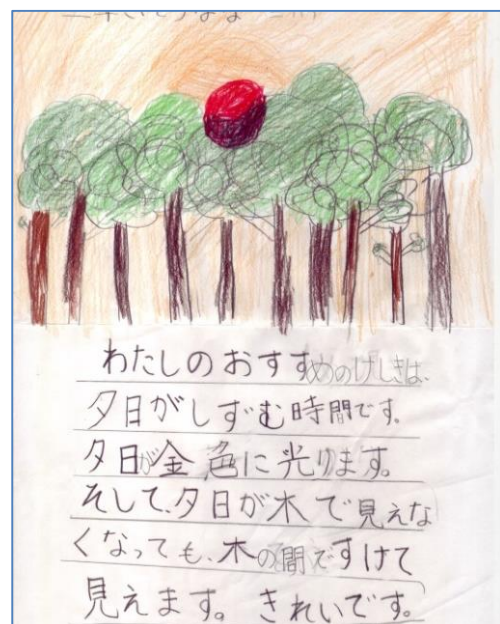 わたしのおすすめのけしきは、
夕日がしずむ時間です。
夕日が金色に光ります。
そして、夕日が木で見えな
くなっても、木の間ですけて
見えます。きれいです。